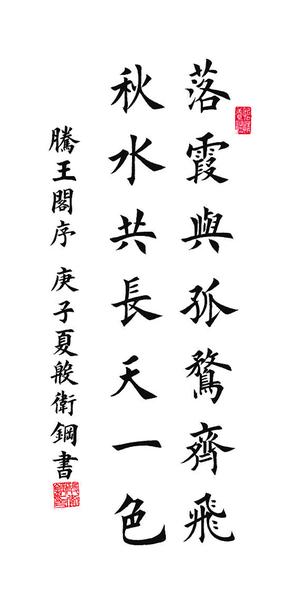 落霞與孤鶩齊飛
秋水共長天一色
騰王閣序 庚子夏般衛鋼書